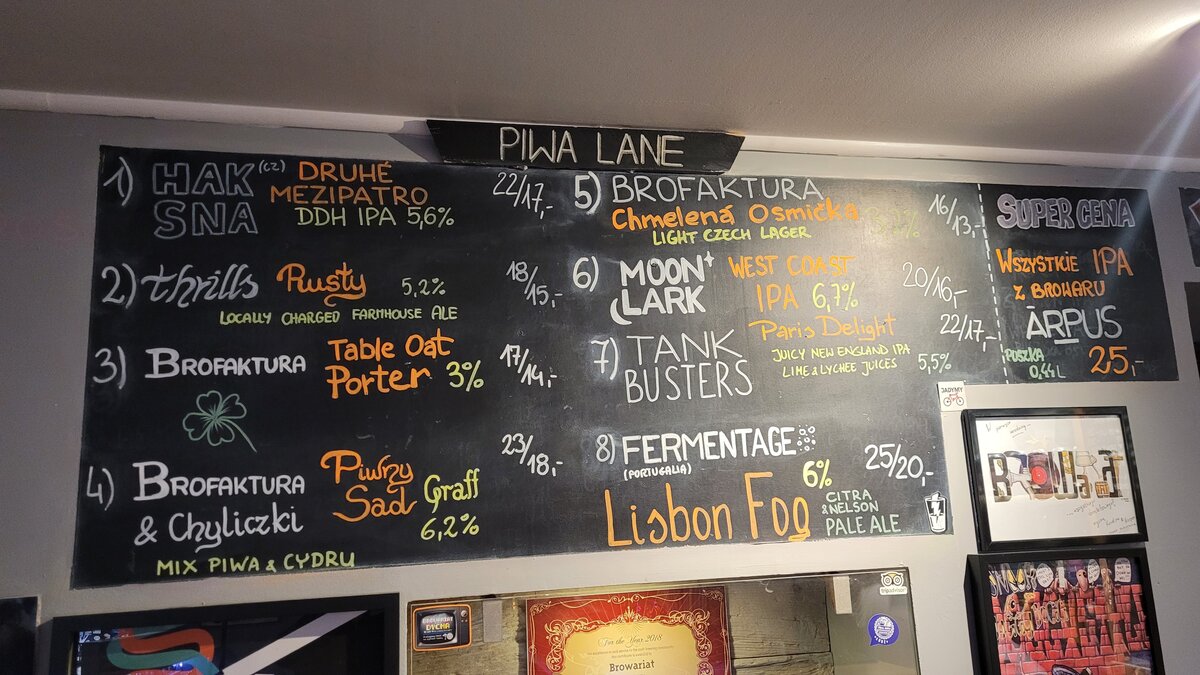 PIWA LANE
1) HAK SNA (CZ) DRUHÉ MEZIPATRO
DDH IPA 5,6%
22/17,-
2) thrills Rusty 5,2%
LOCALLY CHARGED FARMHOUSE ALE
18/15,-
3) BROFAKTURA Table Oat Porter 3%
17/14,-
4) BROFAKTURA & Chyliczki
Piwny Sad Graff 6,2%
23/18,-
MIX PIWA & CYDRU
5) BROFAKTURA
Chmelená Osmička
LIGHT CZECH LAGER
16/13,-
6) MOON LARK WEST COAST IPA 6,7%
20/16,-
7) TANK BUSTERS Paris Delight
JUICY NEW ENGLAND IPA
LIME & LYCHEE JUICES 5,5%
22/17,-
8) FERMENTAGE
(PORTUGALIA)
6%
25/20,-
Lisbon Fog
CITRA & NELSON
PALE ALE
SUPER CENA
WSZYSTKIE IPA
Z BROWARU
ĀRPUS
PUSZKA 0,44L 25,-
JADYMY
BROWARIAT
For the Year 2018
Browariat
tripadvisor